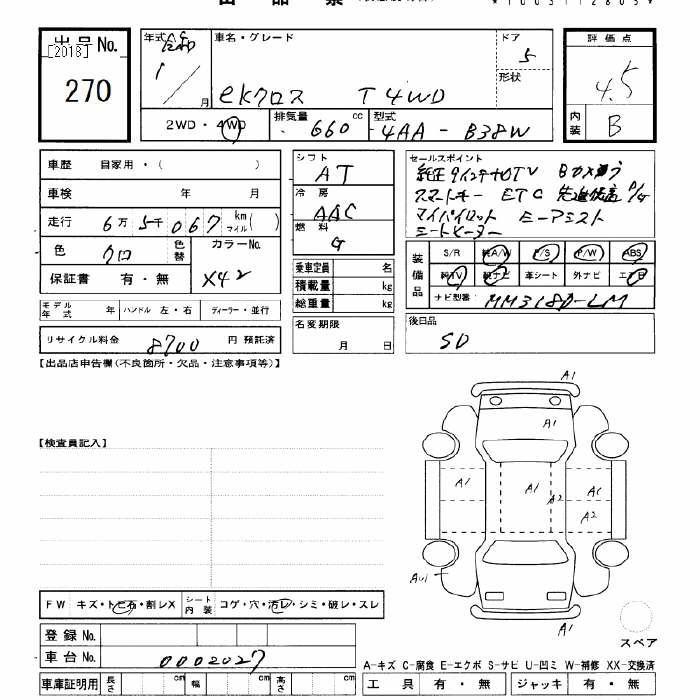 出品No.
[2018]
270
年式
1/月
車名・グレード
eKクロス T 4WD
ドア
5
形状
評価点
4.5
内装
B
2WD・4WD
排気量
660 cc
型式
4AA-B38W
車歴 自家用・( )
車検 年 月
走行 6万 5千 067 km マイル( )
色 クロ 色替
カラーNo.
X42
保証書 有・無
モデル年式 年 ハンドル 左・右 ディーラー・並行
リサイクル料金 8700 円 預託済
シフト
AT
冷房
AAC
燃料
G
乗車定員 名
積載量 kg
総重量 kg
名変期限
月 日
セールスポイント
純正9インチナビTV Bカメラ
スマートキー ETC 先進快適P/G
マイパイロット ミーアシスト
シートヒーター
装備品
S/R 純A/W P/S P/W ABS
純TV 純ナビ 革シート 外ナビ エアB
ナビ型番 MM318D-LM
後日品
SD
【出品店申告欄(不良箇所・欠品・注意事項等)】
【検査員記入】
A1
A1
A1 A1 A2 A1
A2
A1
スペア
FW キズ・トビ石・割レX シート内装 コゲ・穴・汚レ・シミ・破レ・スレ
登録No.
車台No. 0002027
車庫証明用 長さ cm 幅 cm 高さ cm
A-キズ C-腐食 E-エクボ S-サビ U-凹ミ W-補修 XX-交換済
工具 有・無 ジャッキ 有・無